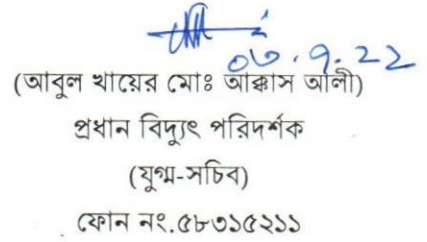 ০৩.৭.২২
(আবুল খায়ের মোঃ আক্কাস আলী)
প্রধান বিদ্যুৎ পরিদর্শক
(যুগ্ম-সচিব)
ফোন নং.৫৮৩১৫২১১